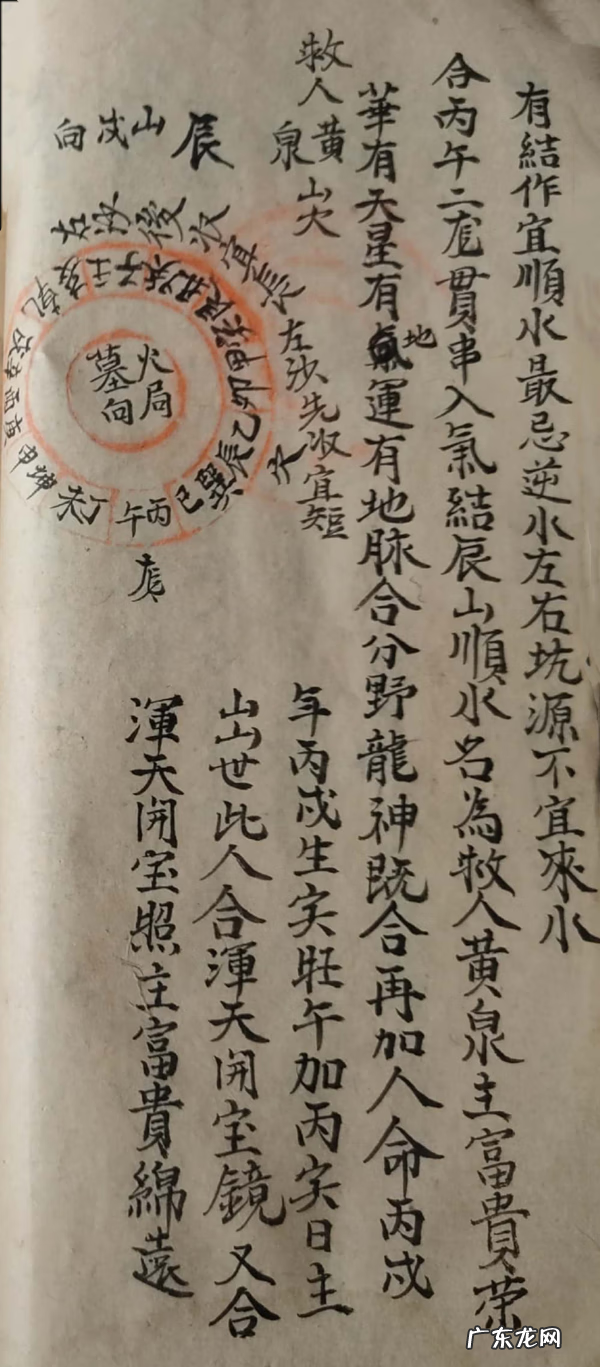 有結作宜順水最忌逆水左右坑源不宜來水
合丙午二龙貫串入氣結辰山順水名為救人黃泉主富貴荣
華有天星有地運有地脉合分野龍神既合再加人命丙戌
年丙戌生寅旺午加丙寅日主
出世此人合渾天開宝鏡又合
渾天開宝照主富貴綿遠
救人黃泉
山
辰
山戌向
右沙後收宜長
左沙先收宜短
火局
墓向
乙辰巽巳丙午丁未坤申庚酉
乾
龙
广东龙网